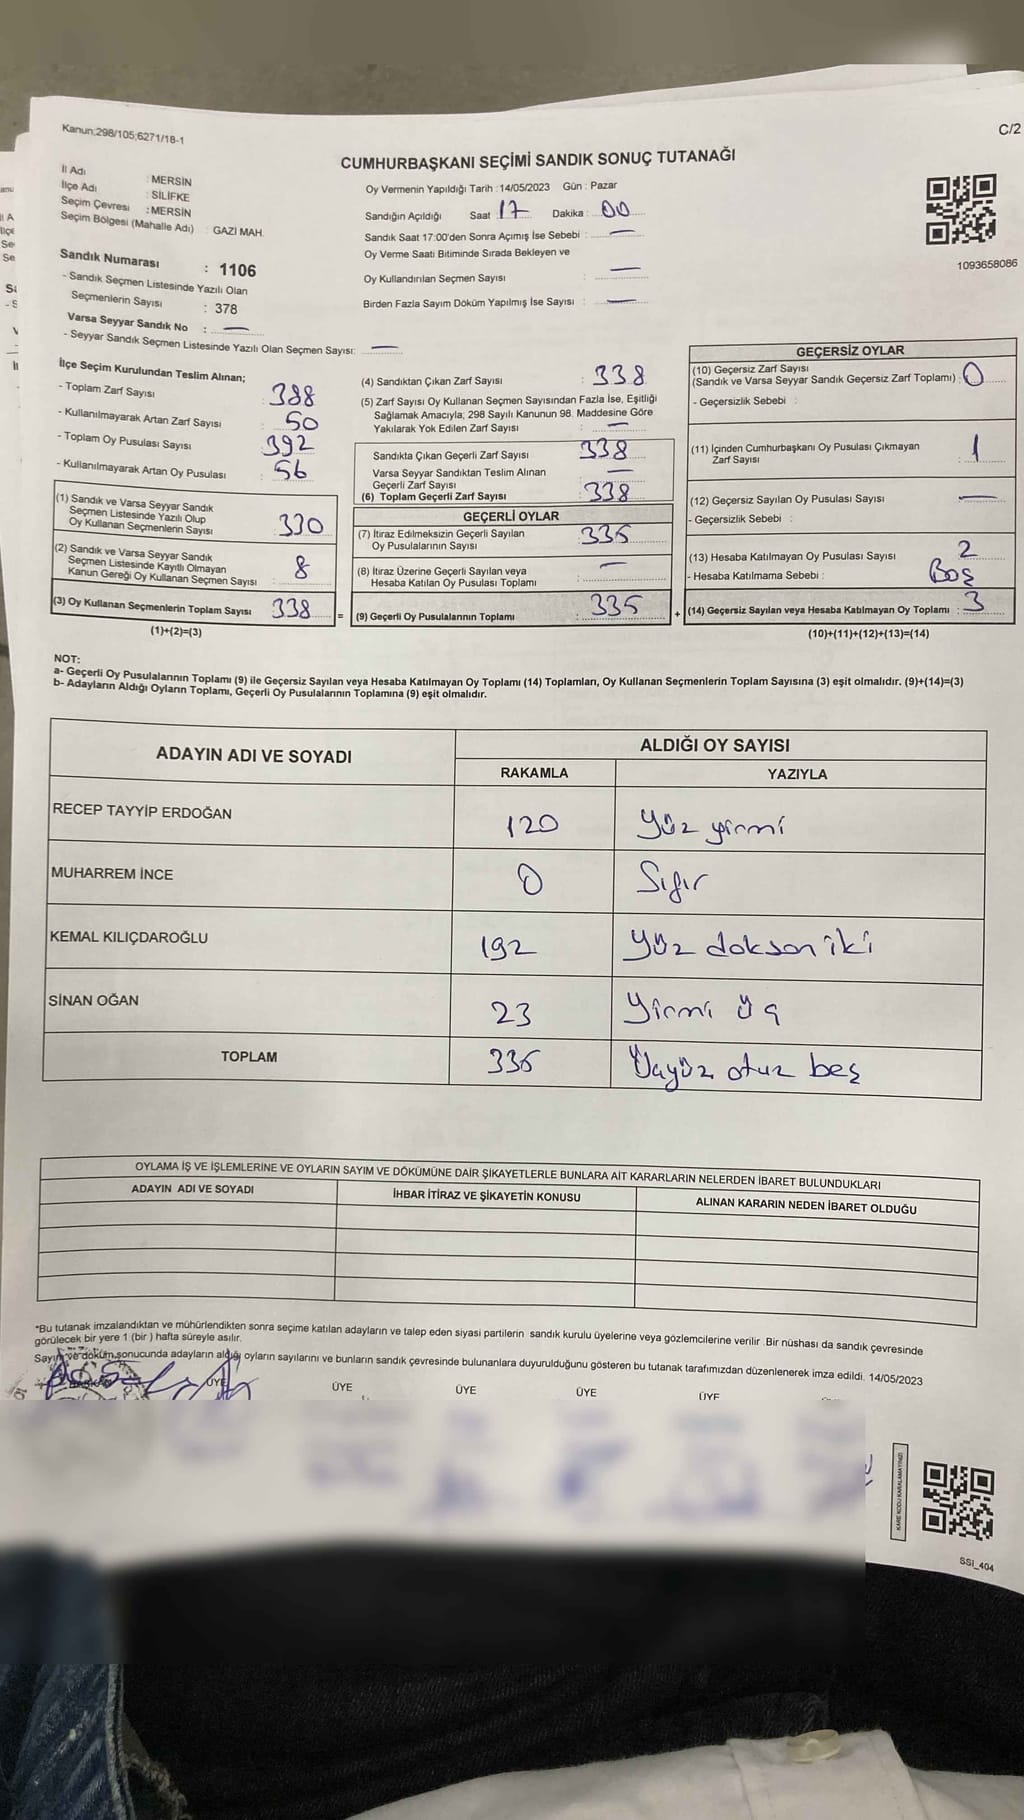 Kanun;298/105;6271/18-1
C/2
CUMHURBAŞKANI SEÇİMİ SANDIK SONUÇ TUTANAĞI
İl Adı : MERSİN
İlçe Adı : SİLİFKE
Seçim Çevresi : MERSİN
Seçim Bölgesi (Mahalle Adı) : GAZİ MAH.
Sandık Numarası : 1106
- Sandık Seçmen Listesinde Yazılı Olan
Seçmenlerin Sayısı : 378
Varsa Seyyar Sandık No : —
- Seyyar Sandık Seçmen Listesinde Yazılı Olan Seçmen Sayısı: —
Oy Vermenin Yapıldığı Tarih : 14/05/2023 Gün : Pazar
Sandığın Açıldığı Saat 17 Dakika : 00
Sandık Saat 17:00'den Sonra Açımış İse Sebebi : —
Oy Verme Saati Bitiminde Sırada Bekleyen ve
Oy Kullandırılan Seçmen Sayısı : —
Birden Fazla Sayım Döküm Yapılmış İse Sayısı : —
1093658086
İlçe Seçim Kurulundan Teslim Alınan;
- Toplam Zarf Sayısı : 388
- Kullanılmayarak Artan Zarf Sayısı : 50
- Toplam Oy Pusulası Sayısı : 392
- Kullanılmayarak Artan Oy Pusulası : 56
(1) Sandık ve Varsa Seyyar Sandık
Seçmen Listesinde Yazılı Olup
Oy Kullanan Seçmenlerin Sayısı : 330
(2) Sandık ve Varsa Seyyar Sandık
Seçmen Listesinde Kayıtlı Olmayan
Kanun Gereği Oy Kullanan Seçmen Sayısı : 8
(3) Oy Kullanan Seçmenlerin Toplam Sayısı : 338
(1)+(2)=(3)
(4) Sandıktan Çıkan Zarf Sayısı : 338
(5) Zarf Sayısı Oy Kullanan Seçmen Sayısından Fazla İse, Eşitliği
Sağlamak Amacıyla; 298 Sayılı Kanunun 98. Maddesine Göre
Yakılarak Yok Edilen Zarf Sayısı : —
Sandıkta Çıkan Geçerli Zarf Sayısı : 338
Varsa Seyyar Sandıktan Teslim Alınan
Geçerli Zarf Sayısı : —
(6) Toplam Geçerli Zarf Sayısı : 338
GEÇERLİ OYLAR
(7) İtiraz Edilmeksizin Geçerli Sayılan
Oy Pusulalarının Sayısı : 335
(8) İtiraz Üzerine Geçerli Sayılan veya
Hesaba Katılan Oy Pusulası Toplamı : —
= (9) Geçerli Oy Pusulalarının Toplamı : 335
GEÇERSİZ OYLAR
(10) Geçersiz Zarf Sayısı
(Sandık ve Varsa Seyyar Sandık Geçersiz Zarf Toplamı) : 0
- Geçersizlik Sebebi :
(11) İçinden Cumhurbaşkanı Oy Pusulası Çıkmayan
Zarf Sayısı : 1
(12) Geçersiz Sayılan Oy Pusulası Sayısı : —
- Geçersizlik Sebebi :
(13) Hesaba Katılmayan Oy Pusulası Sayısı : 2
- Hesaba Katılmama Sebebi : Boş
+ (14) Geçersiz Sayılan veya Hesaba Katılmayan Oy Toplamı : 3
(10)+(11)+(12)+(13)=(14)
NOT:
a- Geçerli Oy Pusulalarının Toplamı (9) ile Geçersiz Sayılan veya Hesaba Katılmayan Oy Toplamı (14) Toplamları, Oy Kullanan Seçmenlerin Toplam Sayısına (3) eşit olmalıdır. (9)+(14)=(3)
b- Adayların Aldığı Oyların Toplamı, Geçerli Oy Pusulalarının Toplamına (9) eşit olmalıdır.
ADAYIN ADI VE SOYADI ALDIĞI OY SAYISI
RAKAMLA YAZIYLA
RECEP TAYYİP ERDOĞAN 120 Yüz yirmi
MUHARREM İNCE 0 Sıfır
KEMAL KILIÇDAROĞLU 192 Yüz doksan iki
SİNAN OĞAN 23 Yirmi üç
TOPLAM 335 Üçyüz otuz beş
OYLAMA İŞ VE İŞLEMLERİNE VE OYLARIN SAYIM VE DÖKÜMÜNE DAİR ŞİKAYETLERLE BUNLARA AİT KARARLARIN NELERDEN İBARET BULUNDUKLARI
ADAYIN ADI VE SOYADI İHBAR İTİRAZ VE ŞİKAYETİN KONUSU ALINAN KARARIN NEDEN İBARET OLDUĞU
*Bu tutanak imzalandıktan ve mühürlendikten sonra seçime katılan adayların ve talep eden siyasi partilerin sandık kurulu üyelerine veya gözlemcilerine verilir. Bir nüshası da sandık çevresinde
görülecek bir yere 1 (bir ) hafta süreyle asılır.
Sayım ve döküm sonucunda adayların aldığı oyların sayılarını ve bunların sandık çevresinde bulunanlara duyurulduğunu gösteren bu tutanak tarafımızdan düzenlenerek imza edildi. 14/05/2023
ÜYE ÜYE ÜYE ÜYE ÜYE
SSİ_404